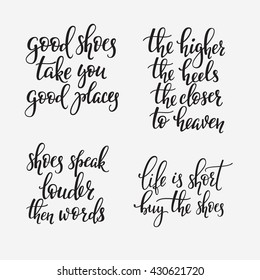 good shoes
take you
good places
the higher
the heels
the closer
to heaven
shoes speak
louder
then words
life is short
buy the shoes
shutterstock.com · 430621720